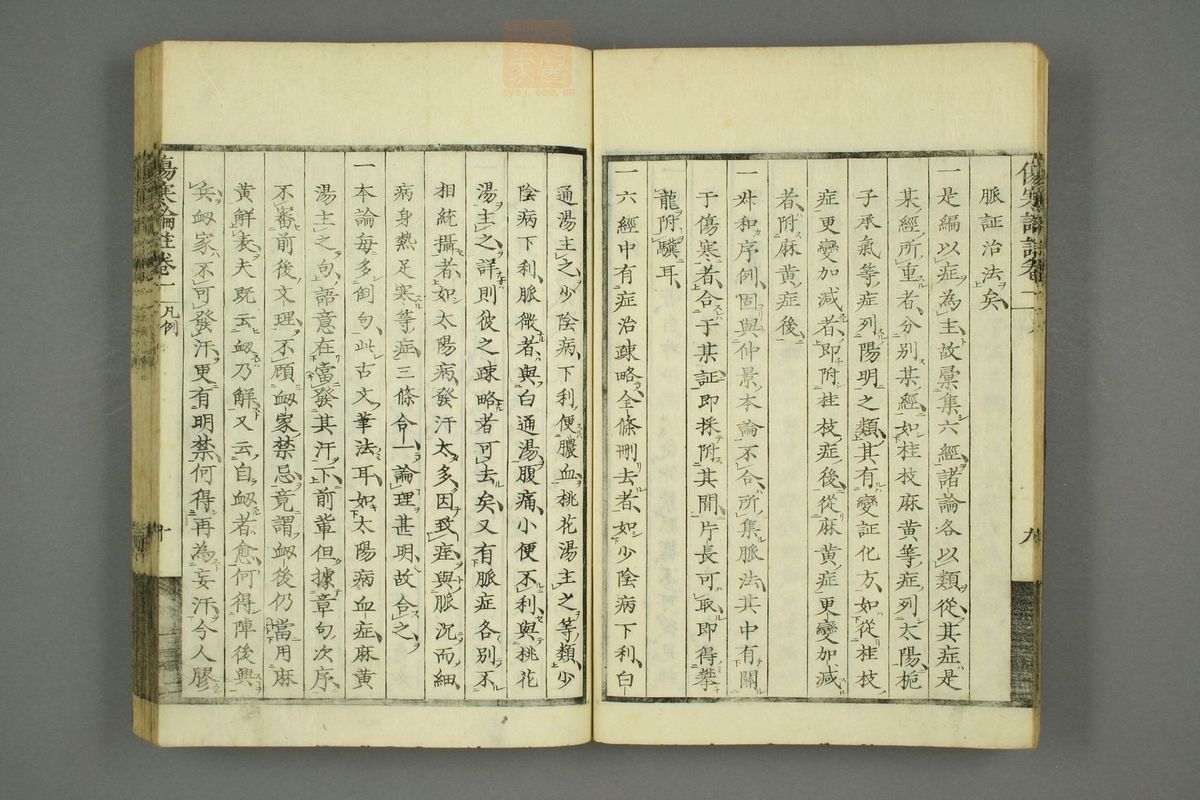 脈証治法矣
一是編以症為主故彙集六經諸論各以類從其症是
某經所重者分別某經如桂枝麻黄等症列太陽梔
子承氣等症列陽明之類其有變証化方如從桂枝
症更變加減者即附桂枝症後從麻黄症更變加減
者附麻黄症後
一叔和序例固與仲景本論不合所集脈法其中有關
于傷寒者合于某証即採附其間片長可取即得攀
龍附驥耳
一六經中有症治疎略全條刪去者如少陰病下利白
通湯主之少陰病下利便膿血桃花湯主之等類少
陰病下利脈微者與白通湯腹痛小便不利與桃花
湯主之詳則彼之疎略者可去矣又有脈症各別不
相統攝者如太陽病發汗太多因致痓與脈沉而細
病身熱足寒等症三條合一論理甚明故合之
一本論每多倒句此古文筆法耳如太陽病血症麻黄
湯主之句語意在當發其汗下前輩但據章句次序
不審前後文理不顧衂家禁忌竟謂衂後仍當用麻
黄解表夫既云衂乃解又云自衂者愈何得陣後興
兵衂家不可發汗更有明禁何得再為妄汗今人膠
傷寒論註卷一
凡例
九
十